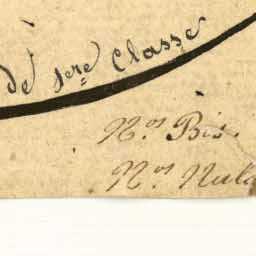 de 1ere Classe
Nos Bis.
Nos Nula